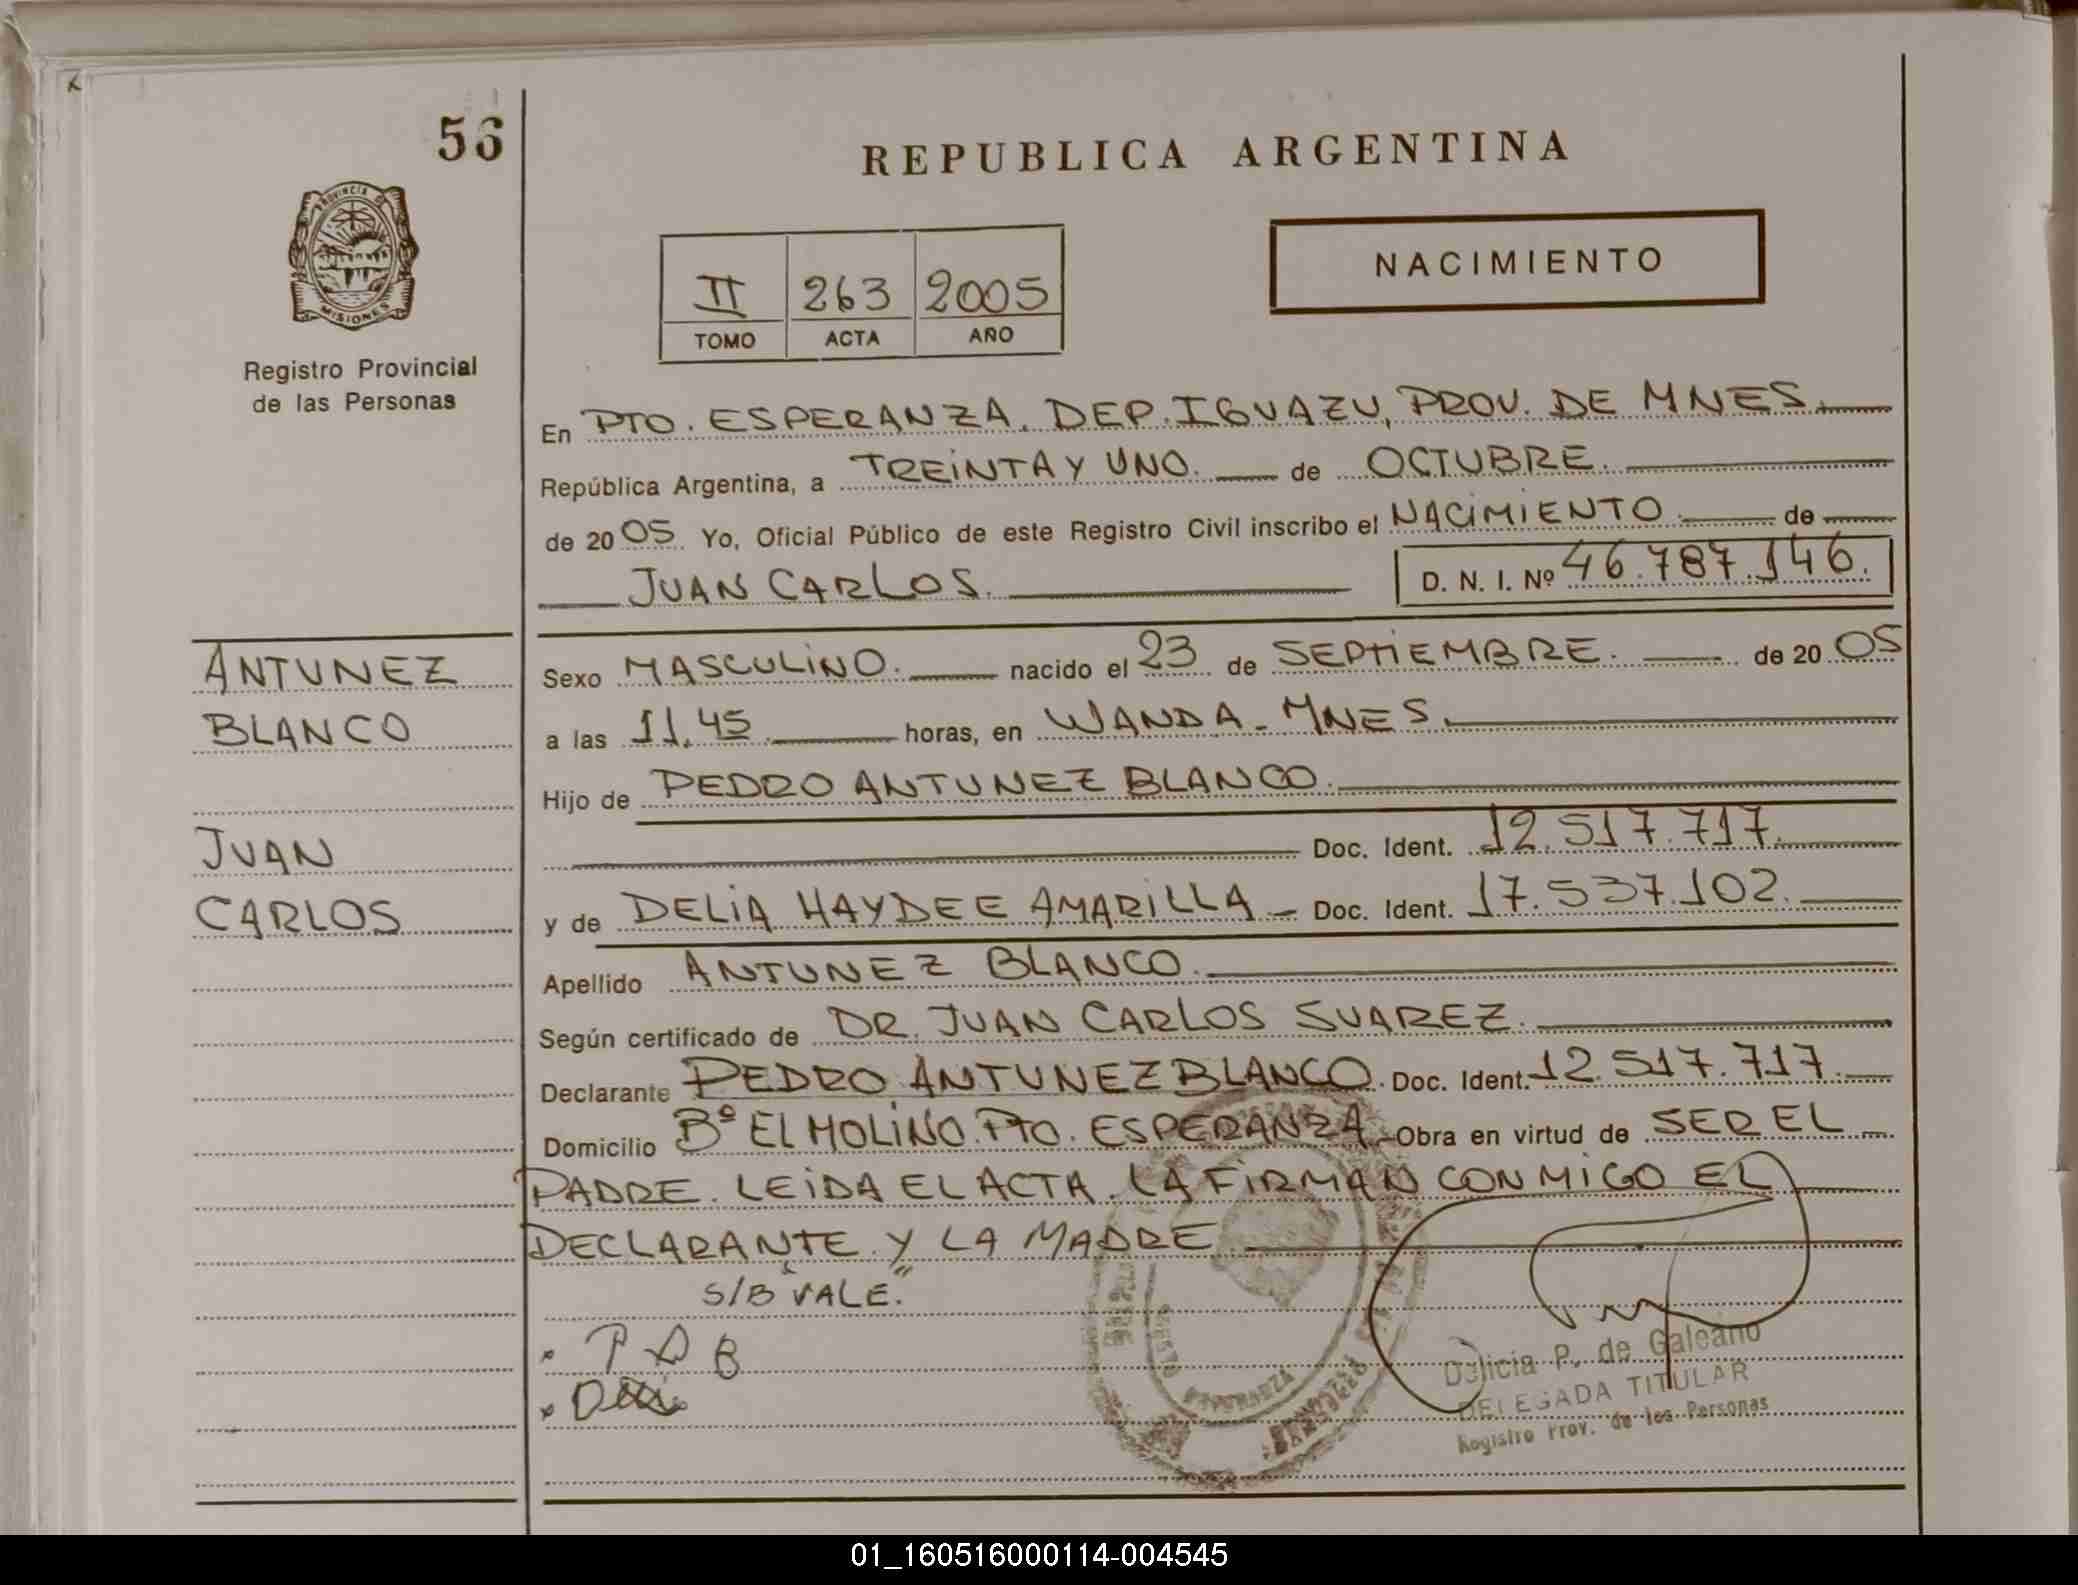 56
REPUBLICA ARGENTINA
PROVINCIA DE
MISIONES
NACIMIENTO
II 263 2005
TOMO ACTA AÑO
Registro Provincial
de las Personas
En PTO. ESPERANZA. DEP. IGUAZU, PROV. DE MNES.
República Argentina, a TREINTA Y UNO. de OCTUBRE.
de 2005. Yo, Oficial Público de este Registro Civil inscribo el NACIMIENTO. de
JUAN CARLOS. D. N. I. Nº 46.787.146.
ANTUNEZ
BLANCO
JUAN
CARLOS
Sexo MASCULINO. nacido el 23 de SEPTIEMBRE. de 2005
a las 11.45 horas, en WANDA - MNES.
Hijo de PEDRO ANTUNEZ BLANCO.
Doc. Ident. 12.517.717.
y de DELIA HAYDEE AMARILLA - Doc. Ident. 17.537.102.
Apellido ANTUNEZ BLANCO.
Según certificado de DR. JUAN CARLOS SUAREZ.
Declarante PEDRO ANTUNEZ BLANCO. Doc. Ident. 12.517.717.
Domicilio Bº EL MOLINO. PTO. ESPERANZA - Obra en virtud de SER EL
PADRE. LEIDA EL ACTA. LA FIRMAN CONMIGO EL
DECLARANTE Y LA MADRE
S/B "VALE."
P A B
Delicia P. de Galeano
DELEGADA TITULAR
Registro Prov. de las Personas
ESPERANZA
01_160516000114-004545